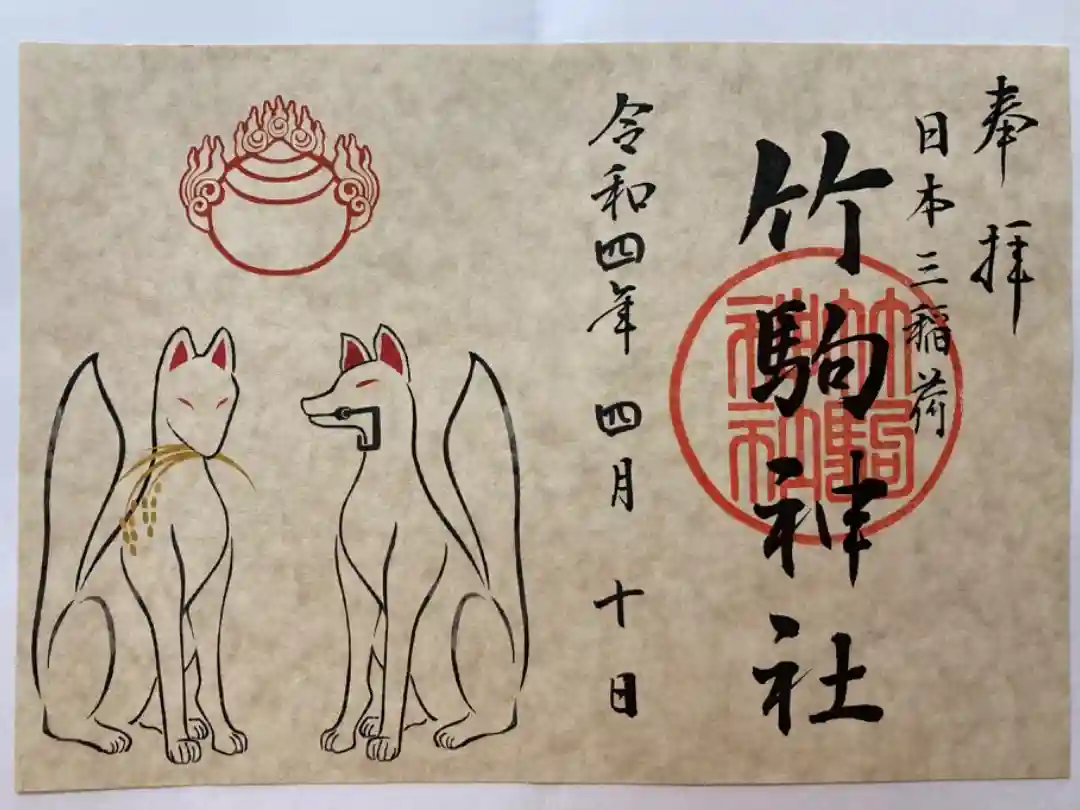 奉拝
日本三稲荷
竹駒神社
竹駒
神社
令和四年四月十日